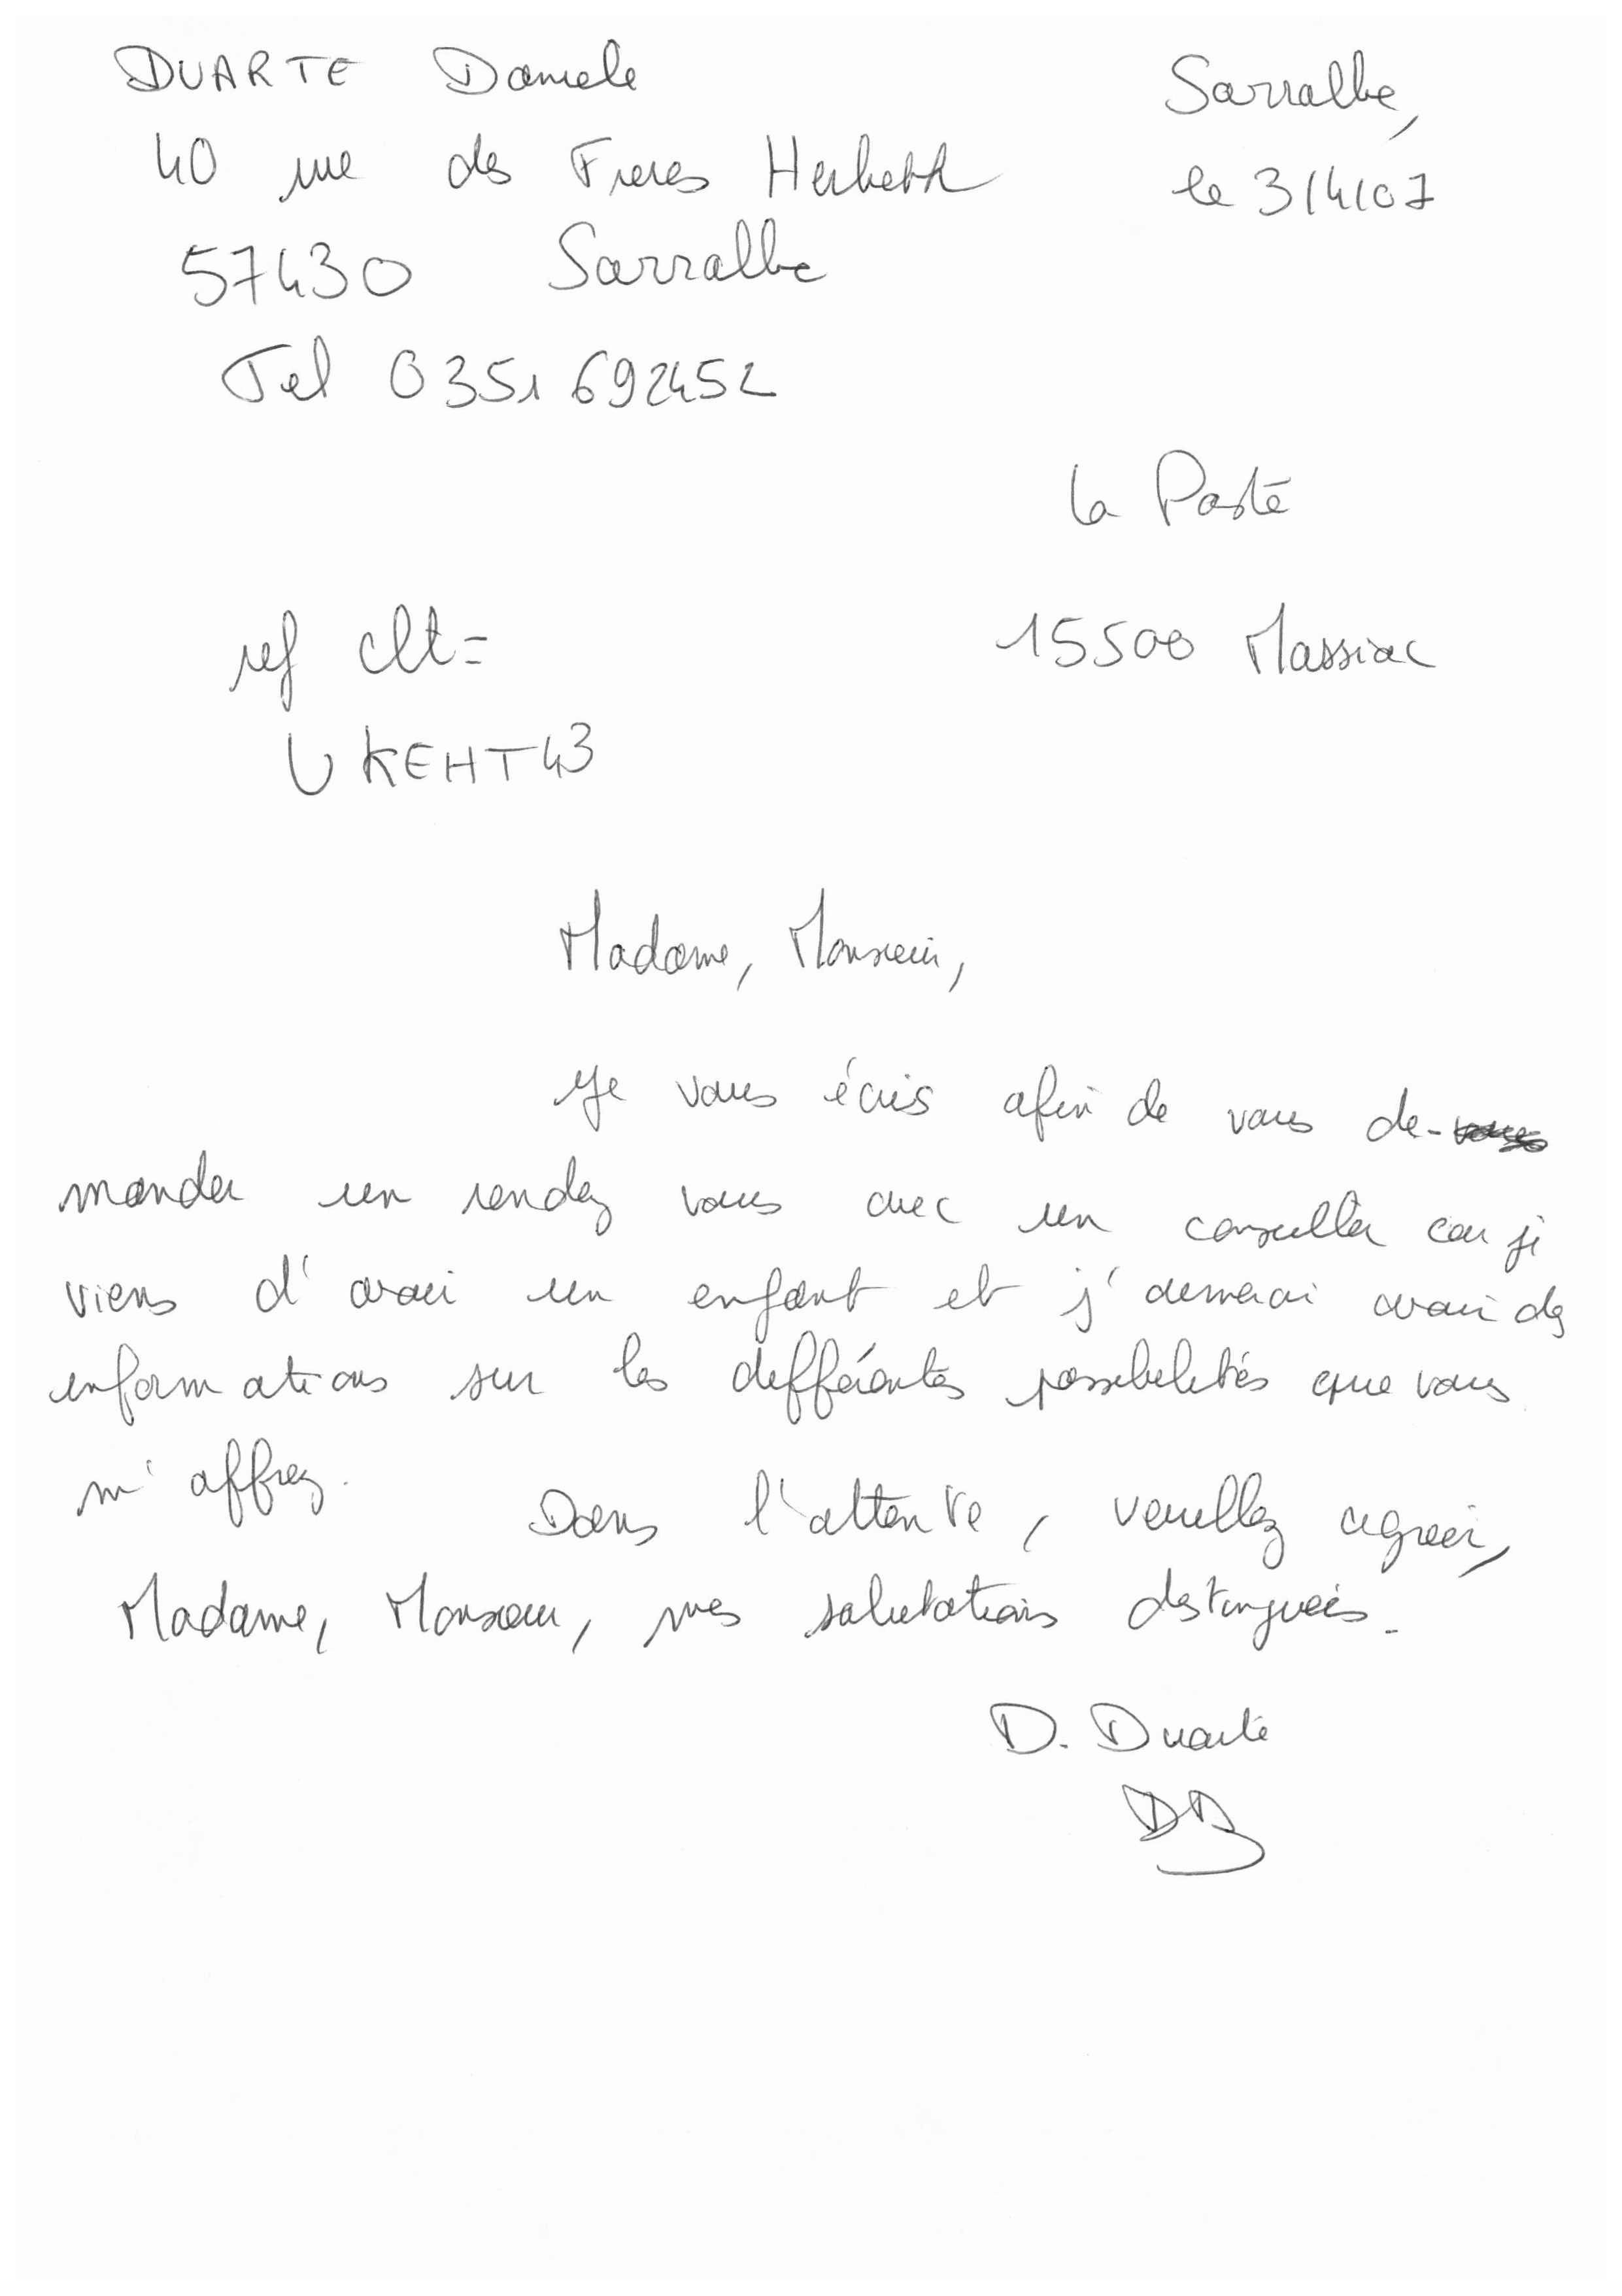 DUARTE Daniele
Sarralbe,
40 rue des Freres Herbeth
le 3/4/07
57430 Sarralbe
Tel 0351692452
La Poste
ref clt =
15500 Massiac
UKEHT43
Madame, Monsieur,
Je vous écris afin de vous de-
mander un rendez vous avec un conseiller car je
viens d'avoir un enfant et j'aimerai avoir des
informations sur les différentes possibilités que vous
m'offrez.
Dans l'attente, veuillez agréer,
Madame, Monsieur, mes salutations distinguées.
D. Duarte
DD